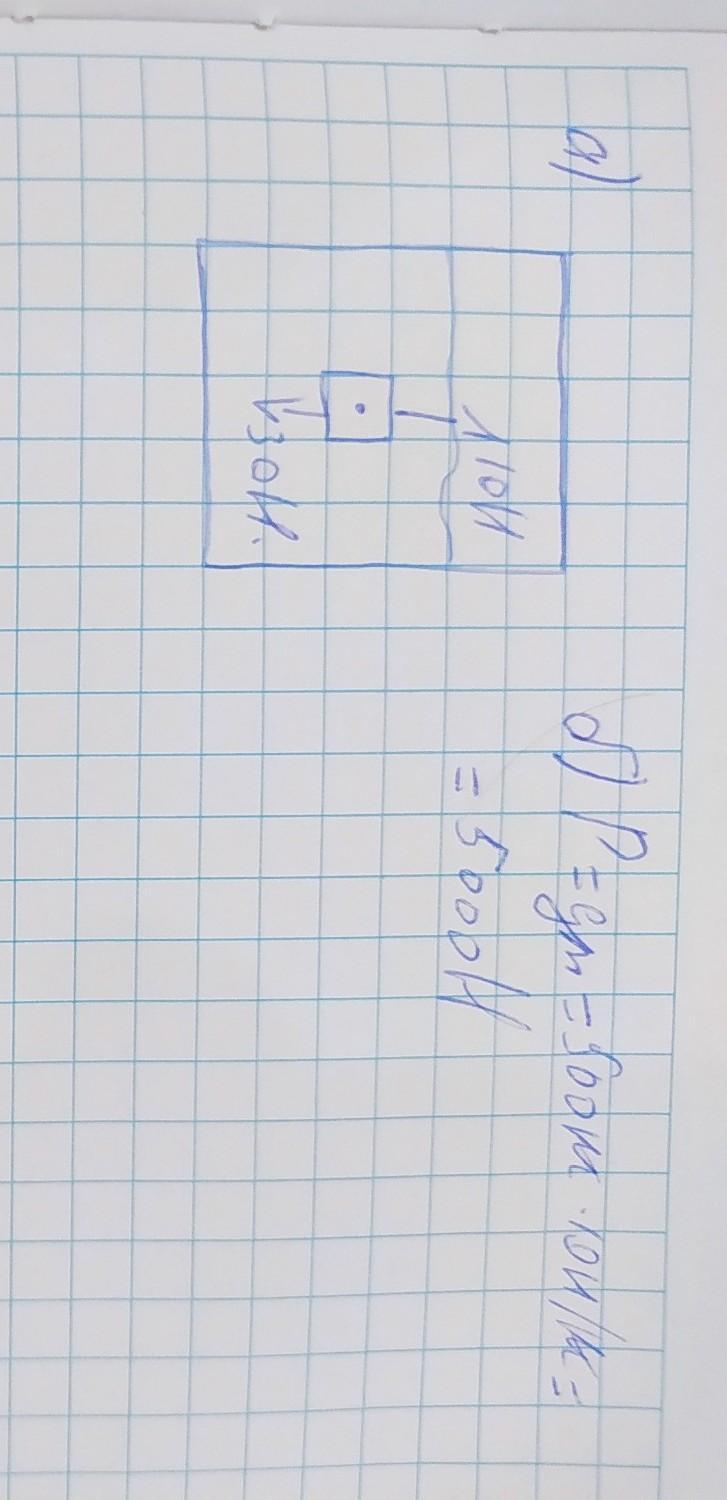 а)
10Н
30Н.
б) P = gm = 500кг · 10Н/кг =
= 5000Н